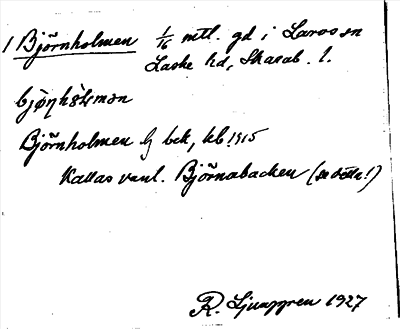 1 Björnholmen 1/16 mtl. gd i Larvs sn
Laske hd, Skarab. l.
Björnholmen hj bek, kb. 1915
Kallas vanl. Björnabacken (se detta!)
R. Ljunggren 1927